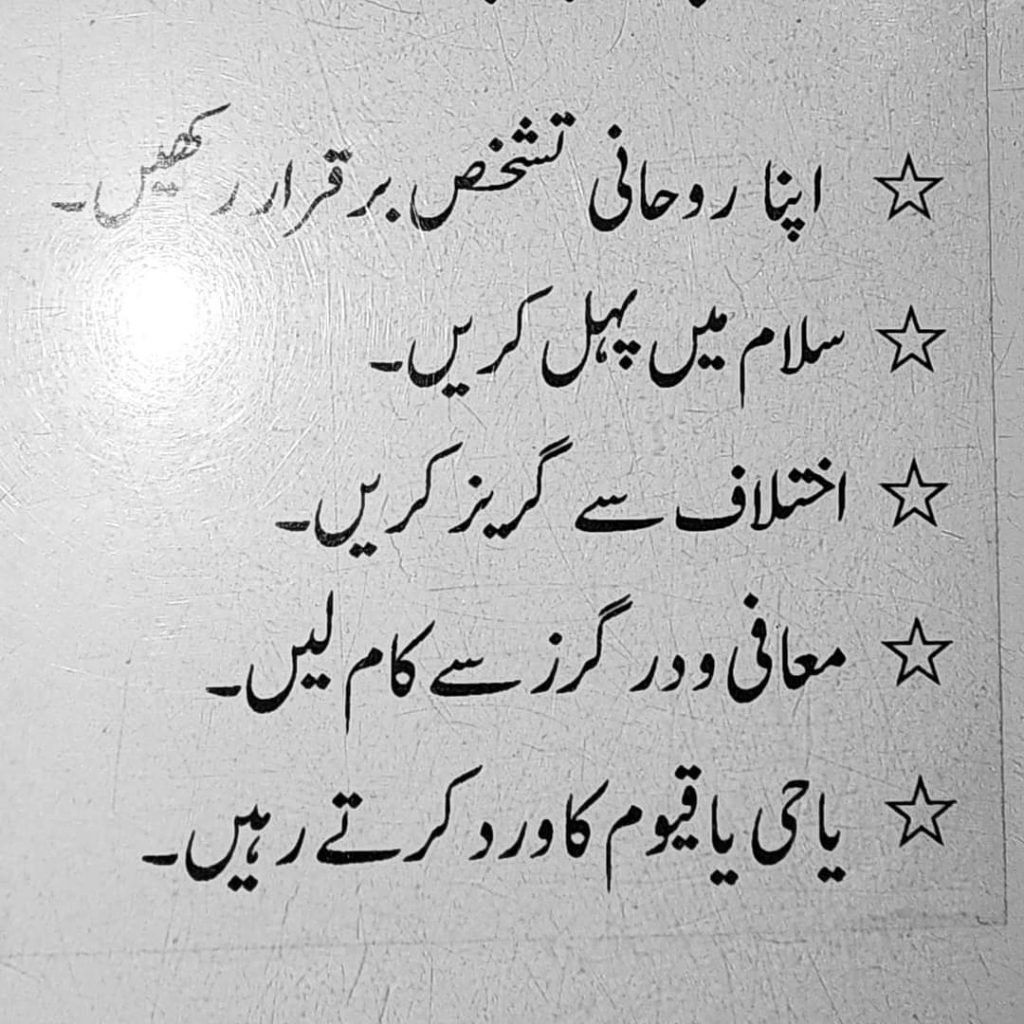 ☆ اپنا روحانی تشخص برقرار رکھیں۔
☆ سلام میں پہل کریں۔
☆ اختلاف سے گریز کریں۔
☆ معافی و درگرز سے کام لیں۔
☆ یا حی یا قیوم کا ورد کرتے رہیں۔